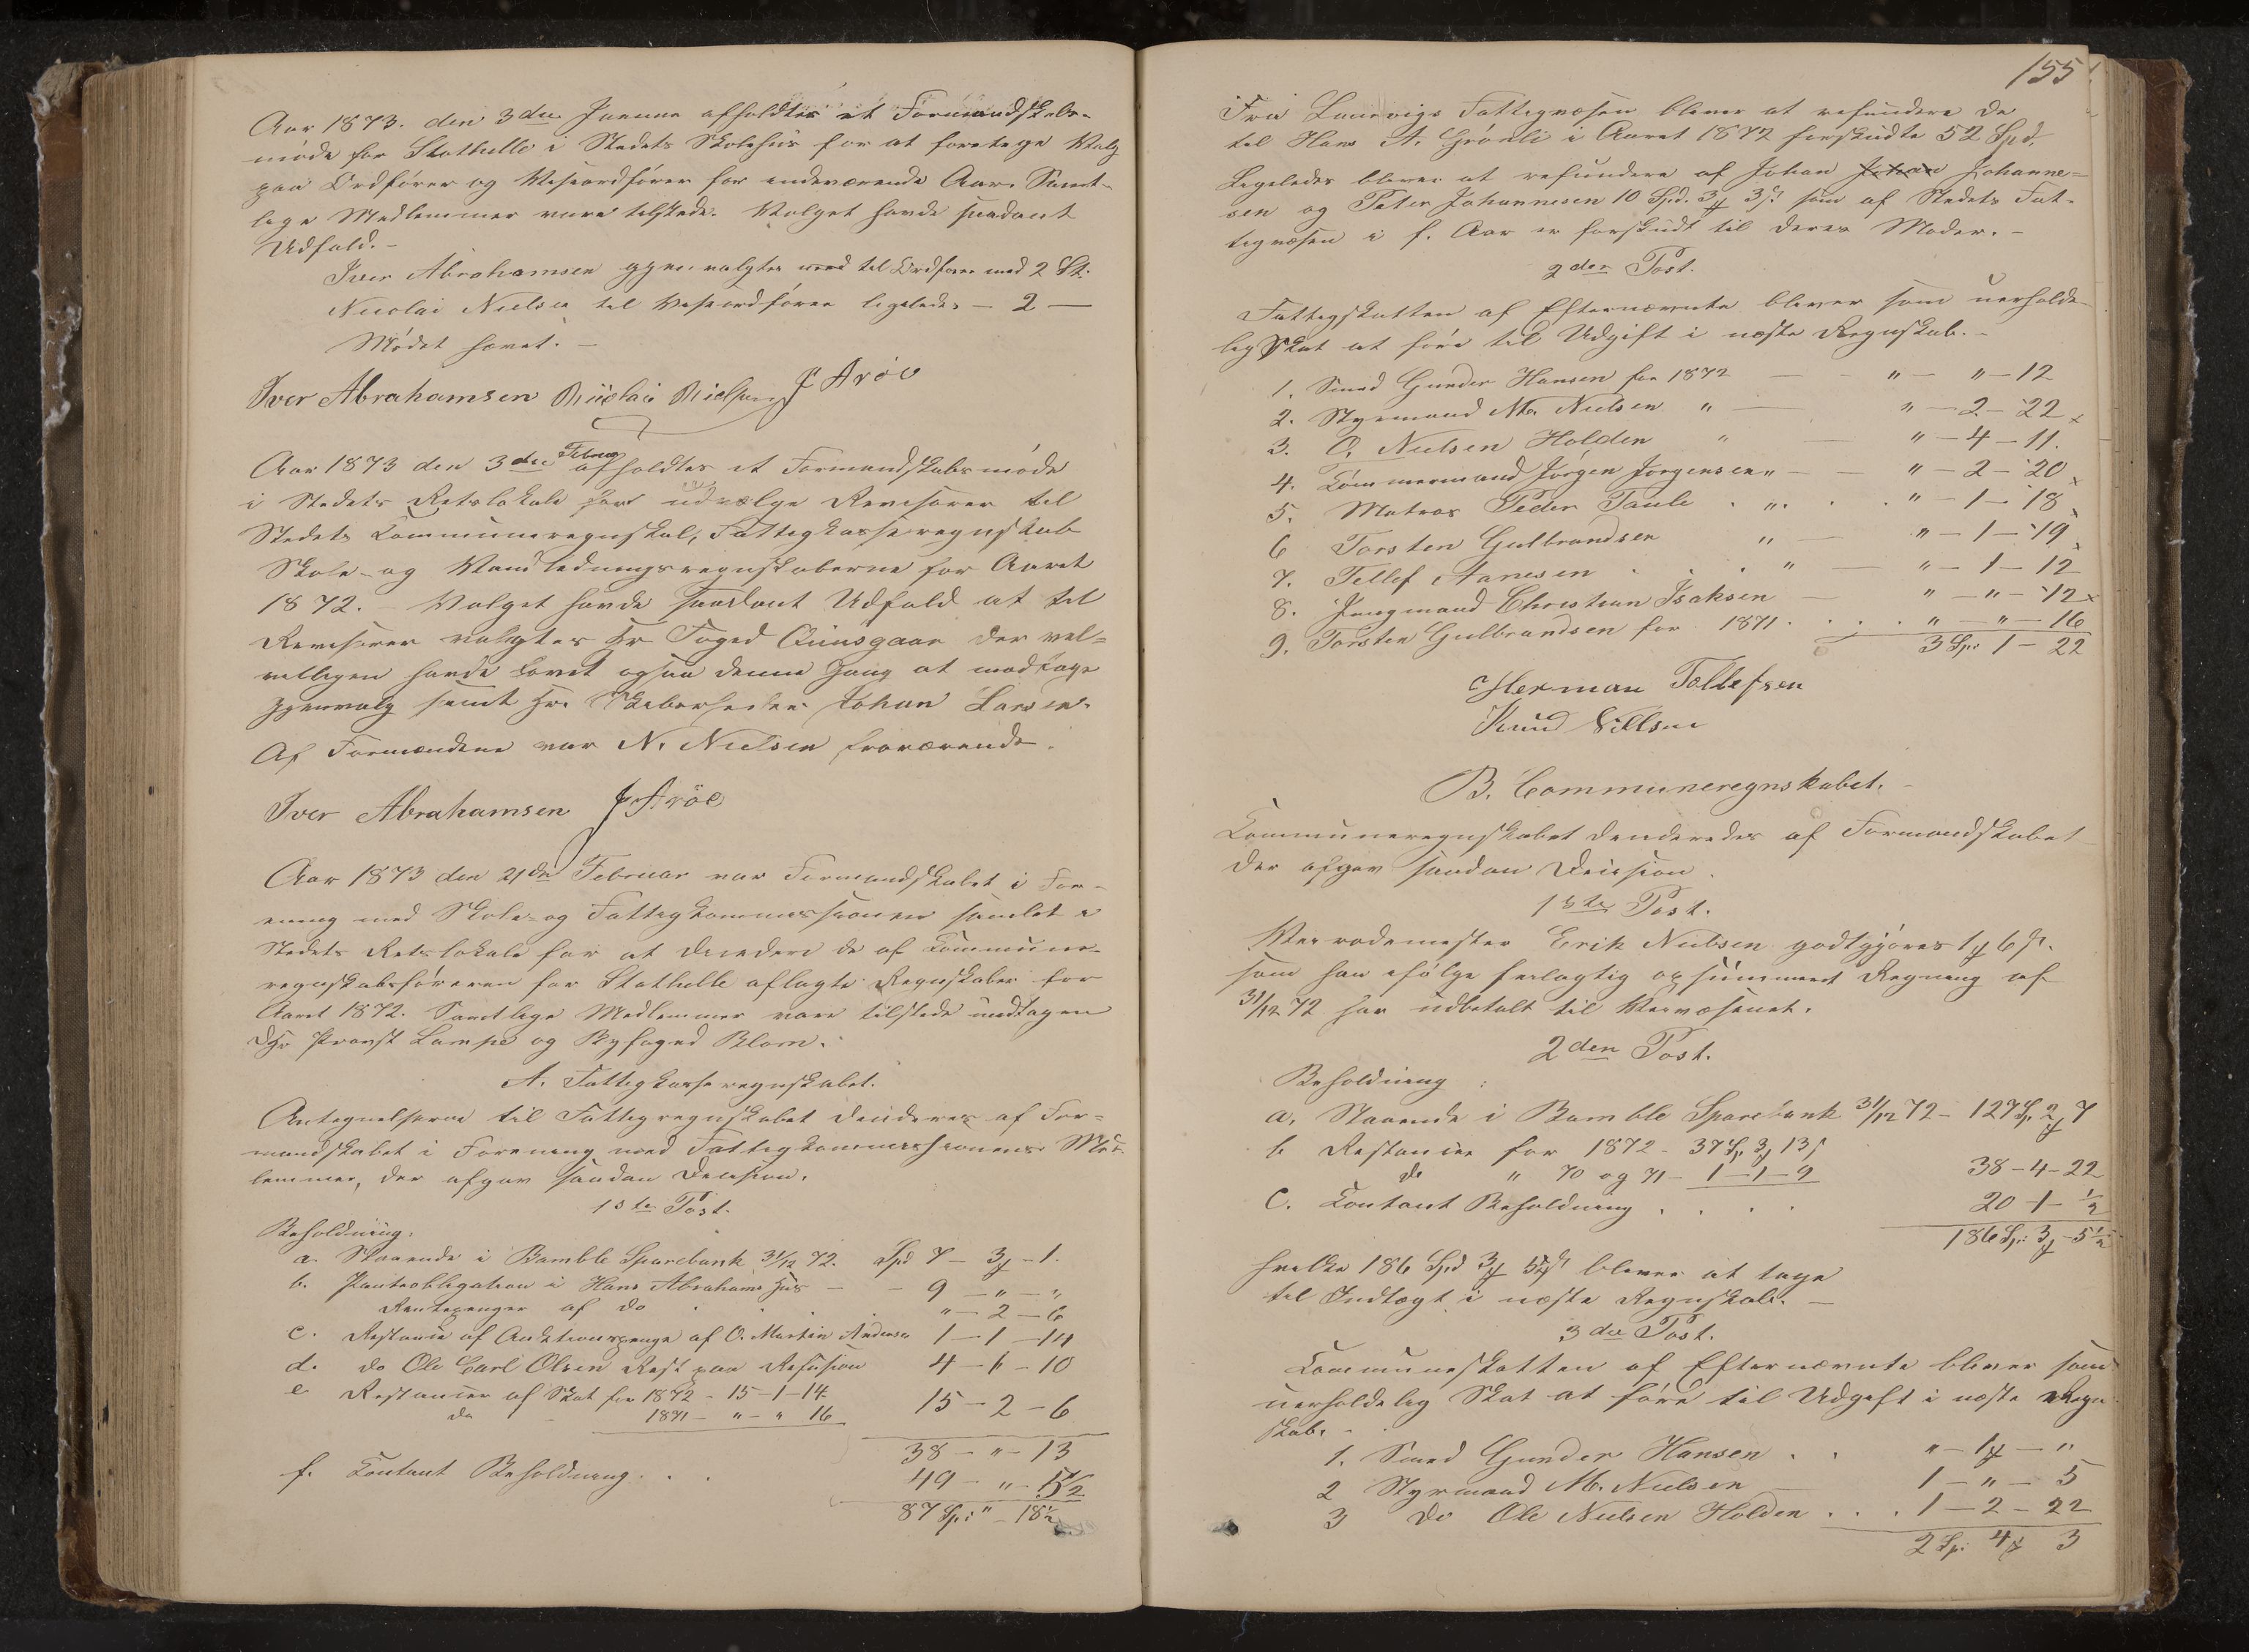 Aar 1873. den 3die Januar afholdtes et Formandskabs-
møde for Stathelle i Stedets Skolehus for at foretage Valg
paa Ordfører og Viseordfører for indeværende Aar. Samt-
lige Medlemmer vare tilstede. Valget havde saadant
Udfald. –
Iver Abrahamsen gjenvalgtes med til Ordfører med 2 St.
Nicolai Nielsen til Viseordfører ligeledes — 2 —
Mødet hævet. –
Iver Abrahamsen Nicolai Nielsen J Arøe
Aar 1873 den 3die Februar afholdtes et Formandskabsmøde
i Stedets Retslokale for at udvælge Revisorer til
Stedets Kommuneregnskab, Fattigkasseregnskab
Skole- og Vandledningsregnskaberne for Aaret
1872. – Valget havde saadant Udfald at til
Revisorer valgtes Hr Foged Qvinsgaar der vel-
villigen havde lovet ogsaa denne Gang at modtage
Gjenvalg samt Hr. Skibsreder Johan Larsen.
Af Formændene var N. Nielsen fraværende.
Iver Abrahamsen J Arøe
Aar 1873 den 21de Februar var Formandskabet i For-
ening med Skole- og Fattigkommissionen samlet i
Stedets Retslokale for at decidere de af Kommune-
regnskabsføreren for Stathelle aflagte Regnskaber for
Aaret 1872. Samtlige Medlemmer vare tilstede undtagen
DHr Provst Lampe og Byfoged Blom.
A. Fattigkasseregnskabet.
Antegnelserne til Fattigregnskabet decideres af For-
mandskabet i Forening med Fattigkommissionens Med-
lemmer, der afgav saadan Decision.
1ste Post.
Beholdning.
a. Staaende i Bamble Sparebank 31/12 72. Spd 7 – 3 – 1.
b. Panteobligation i Hans Abrahams Hus — 9 – " – "
Rentepenger af do . . . " – 2 – 6
c. Restance af Auktionspenge af O. Martin Andersen 1 – 1 – 14
d. do Ole Carl Olsen Rest paa Refusion 4 – " – 10
e Restancer af Skat for 1872 – 15 – 1 – 14
do – 1871 – " – " 16 15 – 2 – 6
38 – " – 13
f. Kontant Beholdning . . . 49 – " – 5 1/2
87 Sp: " – 18 1/2
155
Fra Laurvigs Fattigvæsen bliver at refundere de
til Hans A. Grønli i Aaret 1872 forskudte 52 Spd.
Ligeledes bliver at refundere af Johan Johan Johanne-
sen og Peter Johannesen 10 Spd. 3 3 s som af Stedets Fat-
tigvæsen i f. Aar er forskudt til deres Moder. –
2den Post.
Fattigskatten af Efternævnte bliver som uerholde-
lig Skat at føre til Udgift i næste Regnskab. –
1. Smed Gunder Hansen for 1872 — " – " – 12
2. Styrmand M. Nielsen " — " – 2 – 22
3. O. Nielsen Holden " — " – 4 – 11.
4. Tømmermand Jørgen Jørgensen " — " – 2 – 20
5. Matros Peder Paule . ". . . " – 1 – 18
6 Torsten Gulbrandsen " — " – 1 – 19
7. Tellef Aanesen . . " — " – 1 – 12
8. Jungmand Christian Isaksen — " – " – 12
9. Torsten Gulbrandsen for 1871 . . . . " – " – 16
3 Sp: 1 – 22
Herman Tollefsen
Knud Nilsen
B. Communeregnskabet. –
Kommuneregnskabet decideredes af Formandskabet
der afgav saadan Decision.
1ste Post.
Veirodemester Erik Nielsen godtgjøres 1 6 s.
som han ifølge feilagtig opsummeret Regning af
31/12 72 har udbetalt til Veivæsenet.
2den Post.
Beholdning :
a. Staaende i Bamble Sparebank 31/12 72 – 127 Sp. 2 7
b Restancer for 1872 – 37 Sp. 3 13 s
do " 70 og 71 – 1 – 1 – 9 38 – 4 – 22
C. Kontant Beholdning . . . . 20 – 1 – 1/2
186 Sp: 3 – 5 1/2
hvilke 186 Spd 3 5 1/2 s bliver at tage
til Indtægt i næste Regnskab. —
3die Post.
Kommuneskatten af Efternævnte bliver som
uerholdelig Skat at føre til Udgift i næste Regn-
skab. –
1. Smed Gunder Hansen . . " – 1 – "
2 Styrmand M. Nielsen — 1 – " – 5
3 Do Ole Nielsen Holden . . . 1 – 2 – 22
2 Sp: 4 3